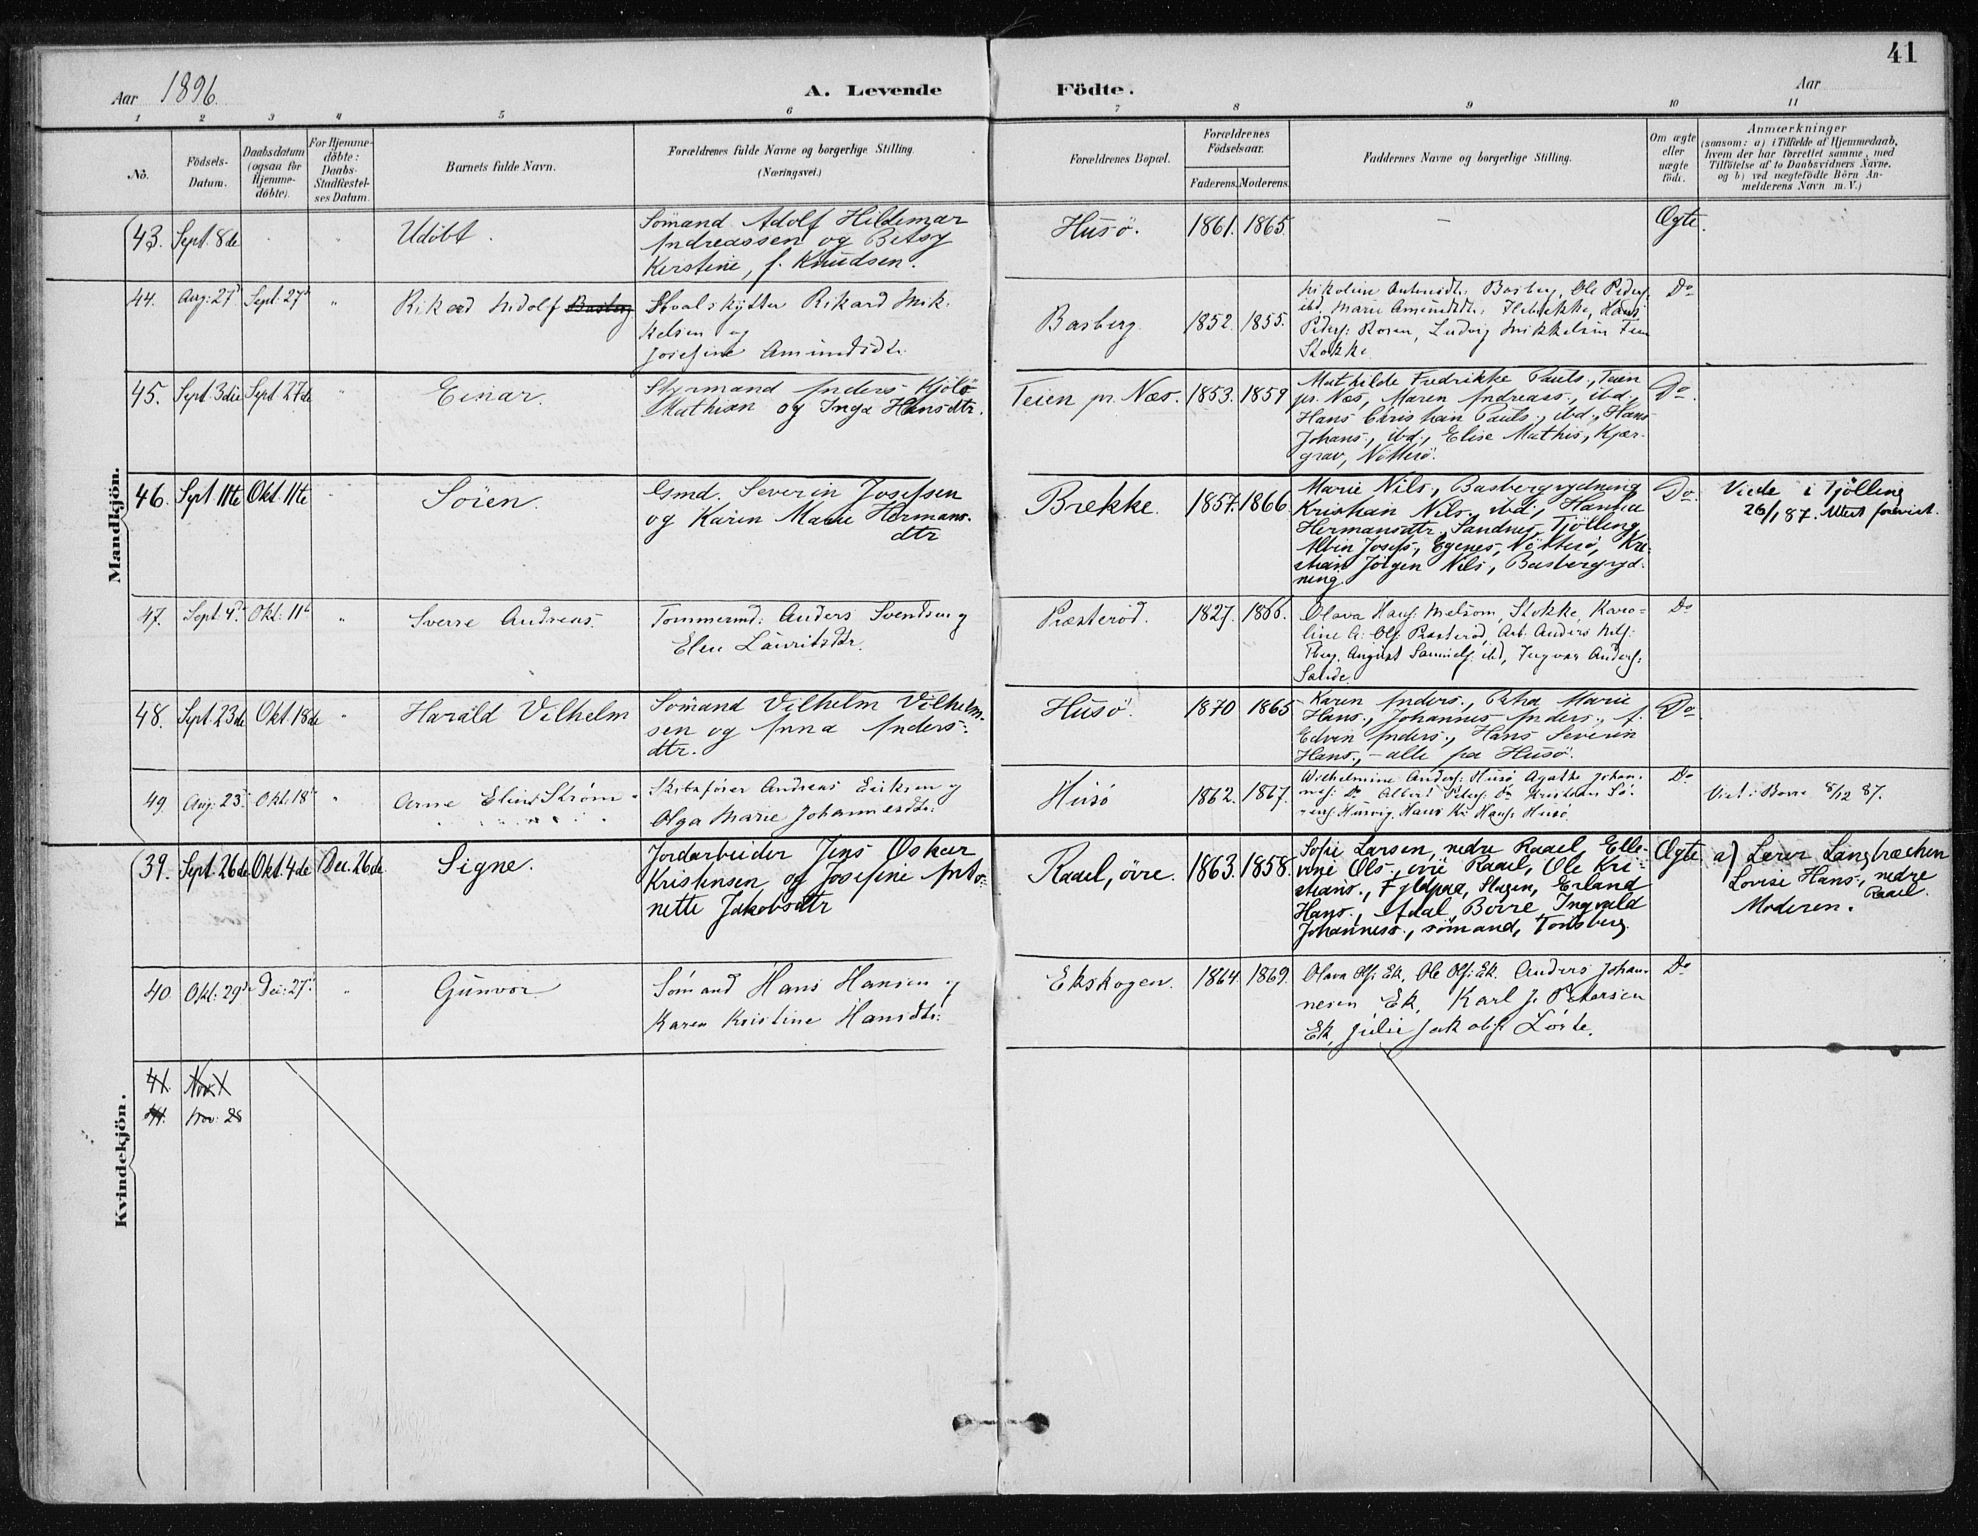 41
Aar 1896. A. Levende Födte. Aar
1 2 3 4 5 6 7 8 9 10 11
No. Födsels-Datum. Daabsdatum (ogsaa for Hjemmedöbte). For Hjemmedöbte: Daabs-Stadfæstelses Datum. Barnets fulde Navn. Forældrenes fulde Navne og borgerlige Stilling. (Næringsvei.) Forældrenes Bopæl. Forældrenes Födselsaar. Faderens. Moderens. Faddernes Navne og borgerlige Stilling. Om ægte eller uægte födt. Anmærkninger (saasom: a) i Tilfælde af Hjemmedaab, hvem der har forrettet samme, med Tilföielse af to Daabsvidners Navne, og b) ved uægtefödte Börn Anmelderens Navn m. V.)
Mandkjön.
43. Sept. 8de Udöbt. Sömand Adolf Hildemar
Andreassen og Betsy
Kirstine, f. Knudsen.
Husö. 1861. 1865. – Ægte.
44. Aug: 27d Sept: 27d " Rikard Midolf Basberg Hvalskytter Rikard Mik-
kelsen og
Josefine Amundsdtr.
Basberg. 1852. 1855.
Basberg, Ole Peders:
ibd, Marie Amundsdtr:
Peders: Rosen, Ludvig Mikkelsen
Stokke
Do
45. Sept 3die Sept. 27de " Einar. Styrmand Anders Kjölö
Mathisen og Inga Hansdtr.
Teien pr. Næs. 1853. 1859
Mathilde Fredrikke Pauls., Teien
pr. Næs, Maren Andreass., ibd.,
Hans Christian Pauls., ibd., Hans
Johans., ibd., Elise Mathis., Kjær-
grav, Nötterö.
Do.
46. Sept 11te Okt. 11te " Söien. Gmd. Severin Josefsen
og Karen Marie Hermans-
dtr
Brekke. 1857. 1866.
Marie Nils., Basbergrydning
Kristian Nils., ibd.,
Hermansdtr., Sandnes, Tjölling
Albin Josefs., Egenes, Nötterö, Kri-
stian Jörgen Nils., Basbergryd-
ning.
Do. Viede i Tjölling
26/1 87. Attest forevist.
47. Sept. 4d. Okt: 11d " Sverre Andreas. Tömmermd. Anders Svendsen og
Elen Lauritsdtr.
Præsteröd. 1827. 1866.
Olava Hans: Melsom, Stokke, Karo-
line A: Ols: Præsteröd, Arb. Anders Nils:
Tbeg. August Samuels: ibd, Ingvar Anders:
Sande.
Do
48. Sept. 23de Okt. 18de " Harald Vilhelm Sömand Vilhelm Vilhelm-
sen og Anna Anders-
dtr.
Husö. 1870 1865
Karen Anders., Petra Marie
Hans., Johannes Anders., f.
Edvin Anders., Hans Severin
Hans., – alle paa Husö.
Do.
49. Aug: 23d. Okt: 18d " Arne Elias Ström Skibsförer Andreas Eriksen og
Olga Marie Johannesdtr:
Husö 1862. 1867.
Wilhelmine Anders: Husö Agathe Johan-
nes: Do Albert Peders: Do Kristian Sö-
rens: Husvig, Hans Kr Hans: Husö.
Do Viet i Borre 8/12 87.
Kvindekjön.
39. Sept. 26de Okt. 4de Dec. 26de Signe. Jordarbeider Jens Oskar
Kristensen og Josefine Anto-
nette Jakobsdtr
Raael, övre. 1863. 1858.
Sofie Larsen, nedre Raael, Elle-
vine Ols., övre Raael, Ole Kri-
stians., Fyldpaa, Slagen, Erland
Hans., Afdal, Borre, Ingvald
Johanness., sömand, Tönsberg.
Ægte a) Lærer Langbrechen
Lovise Hans., nedre
Raael.
Moderen.
40 Okt: 29d. Dec: 27d. " Gunvor Sömand Hans Hansen og
Karen Kristine Hansdtr:
Ekskogen. 1864. 1869.
Olava Ols: Ek, Ole Ols: Ek, Anders Johan-
nesen Ek, Karl J. Petersen
Ek, Julie Jakobs: Lörte.
Do
41. Nov.
41. Nov: 28